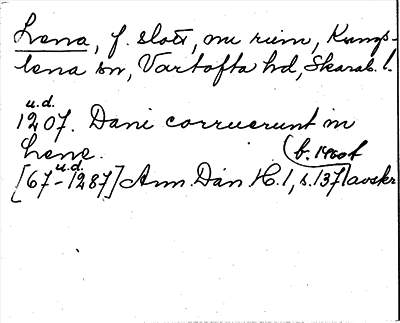 Lena, f. slott, nu ruin, Kungs-
lena sn, Vartofta hd, Skarab. l.
u.d.
1207. Dani corruerunt in
Lene.
(b. 1400t
u.d.
[67-1287] Ann. Dan H. 1, s. 137 avskr